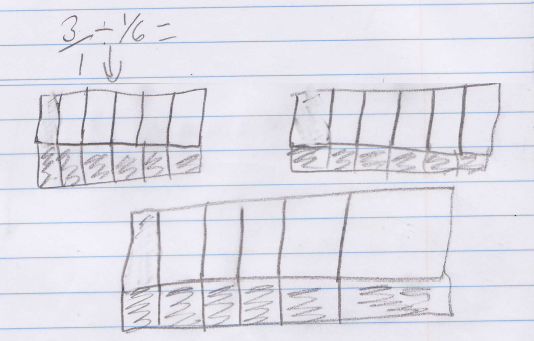 3/1 ÷ 1/6 =